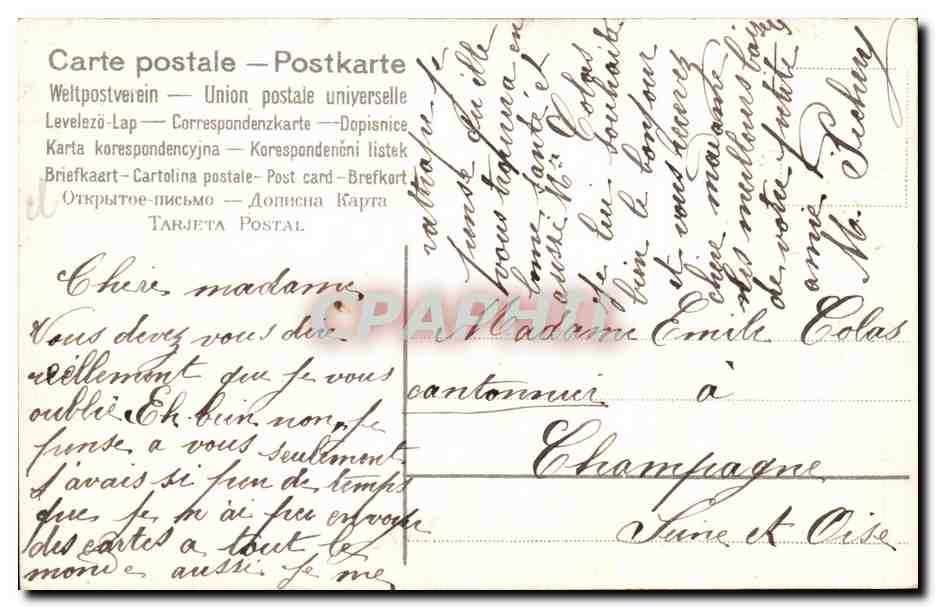 Carte postale — Postkarte
Weltpostverein — Union postale universelle
Levelező-Lap — Correspondenzkarte — Dopisnice
Karta korespondencyjna — Korespondenční listek
Briefkaart - Cartolina postale - Post card - Brefkort
Открытое-письмо — Дописна Карта
TARJETA POSTAL
Chère madame
Vous devez vous dire
réellement que je vous
oublie Eh bien non, je
pense a vous seulement
j'avais si peu de temps
que je n'ai pu envoyer
des cartes a tout le
monde aussi je me
rattrape je
pense qu'elle
vous trouvera en
bonne santé et
aussi Mr Colas
je lui souhaite
bien le bonjour
et vous recevez
chère madame
mes meilleurs baisers
de votre petite
amie
M.
Madame Emile Colas
cantonnier à
Champagne
Seine et Oise
CPAPHIL